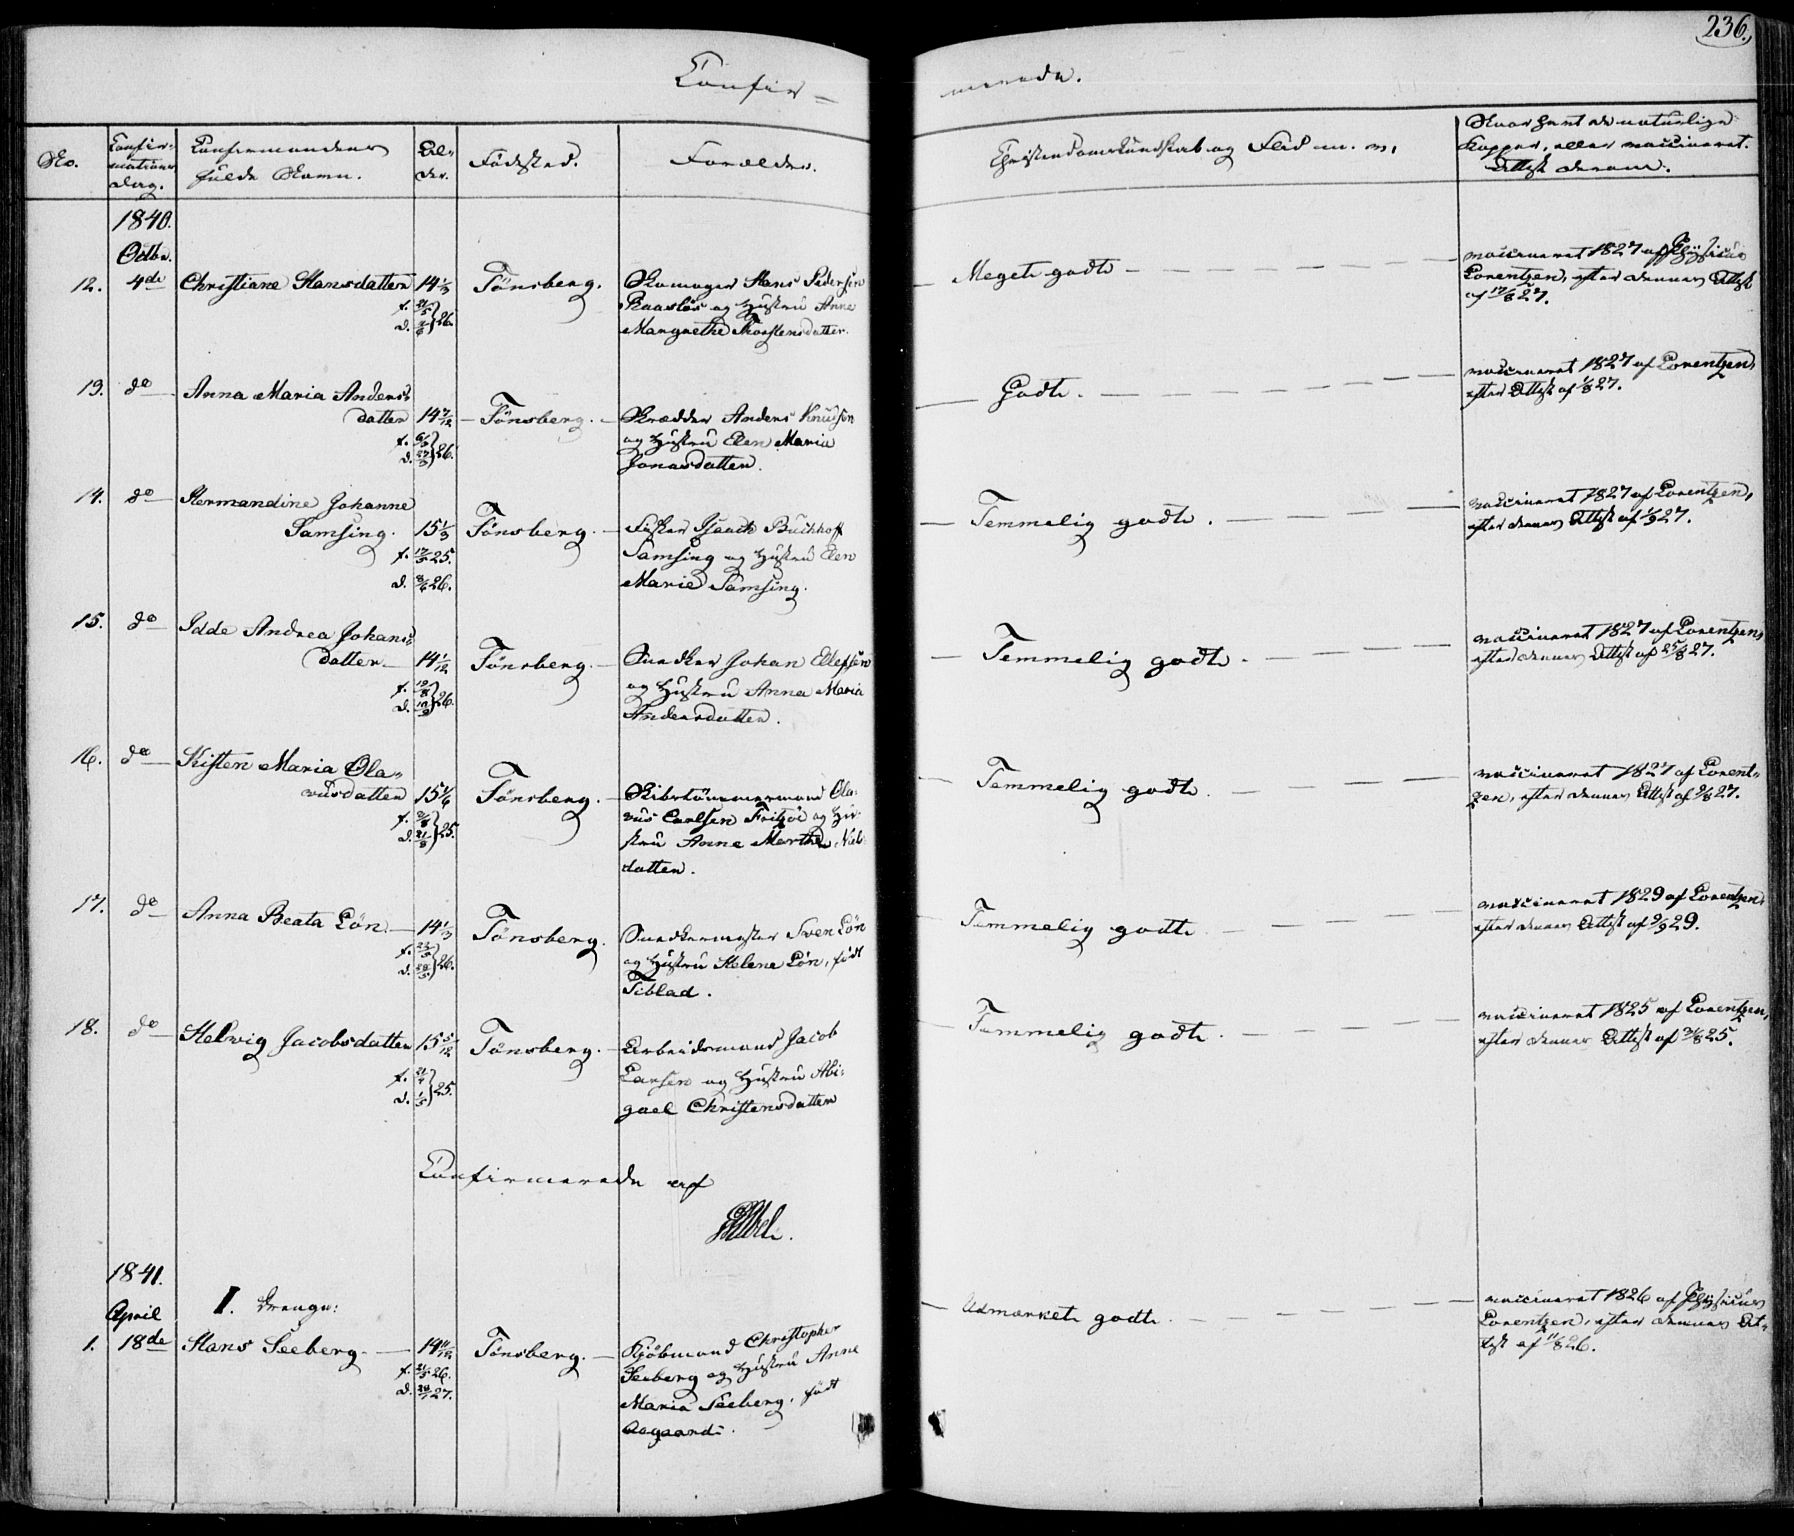 236.
Confir-
merede.
No.
Confir-
mations
dag.
Confirmandens
fulde Navn.
Al-
der.
Födested.
Forældre.
Christendomskundskab og Flid m. m.
Hvor havt de naturlige
Kopper, eller vaccineret.
Attest derom.
1840.
Octbr.
12. 4de Christiane Hansdatter 14 1/3 Tönsberg. Skomager Hans Pedersen
og Hustru Anne
Margrethe Thorstensdatter.
f.
d. 26.
Meget godt
vaccineret 1827 af Physicus
Lorentzen, efter dennes Attest
af 17/8 27.
13. do Anna Maria Anders-
datter 14 7/12 Tönsberg. Skrædder Anders Knudsen
og Hustru Elen Maria
Jonasdatter.
f.
d. 26.
Godt.
vaccineret 1827 af Lorentzen,
efter Attest af 1/8 27.
14. do Hermandine Johanne
Samsing. 15 1/3 Tönsberg. Fisker Isach Buchhoff
Samsing og Hustru Elen
Marie Samsing.
f. 25.
d. 26.
Temmelig godt.
vaccineret 1827 af Lorentzen,
efter dennes Attest af 1/9 27.
15. do Idde Andrea Johans-
datter. 14 1/12 Tönsberg. Snedker Johan Ellefsen
og Hustru Anna Maria
Andersdatter.
f.
d. 26.
Temmelig godt.
vaccineret 1827 af Lorentzen,
efter dennes Attest af 25/8 27.
16. do Kisten Maria Ola-
vusdatter 15 1/6 Tönsberg. Skibstömmermand Ola-
vus Carlsen Fritzöe og Hu-
stru Anne Marthe Niels-
datter.
f.
d. 25.
Temmelig godt.
vaccineret 1827 af Lorent-
zen, efter dennes Attest af 27.
17. do Anna Beata Lön. 14 1/3 Tönsberg. Snedkermester Sven Lön
og Hustru Helene Lön, födt
Tiblad.
f.
d. 26.
Temmelig godt.
vaccineret 1829 af Lorentzen,
efter dennes Attest af 29.
18. do Helvig Jacobsdatter 15 5/12 Tönsberg. Arbeidsmand Jacob
Larsen og Hustru Abi-
gael Christensdatter
f. 21/4
d. 1/5 25.
Temmelig godt.
vaccineret 1825 af Lorentzen,
efter dennes Attest af 25.
Confirmerede af
1841.
April I. Drenge:
1. 18de Hans Seeberg. 14 11/12 Tönsberg. Kjöbmand Christopher
Seeberg og Hustru Anne
Maria Seeberg, födt
Aagaard.
f. 26.
d. 27.
Udmærket godt.
vaccineret 1826 af Physicus
Lorentzen, efter dennes At-
test af 11/8 26.